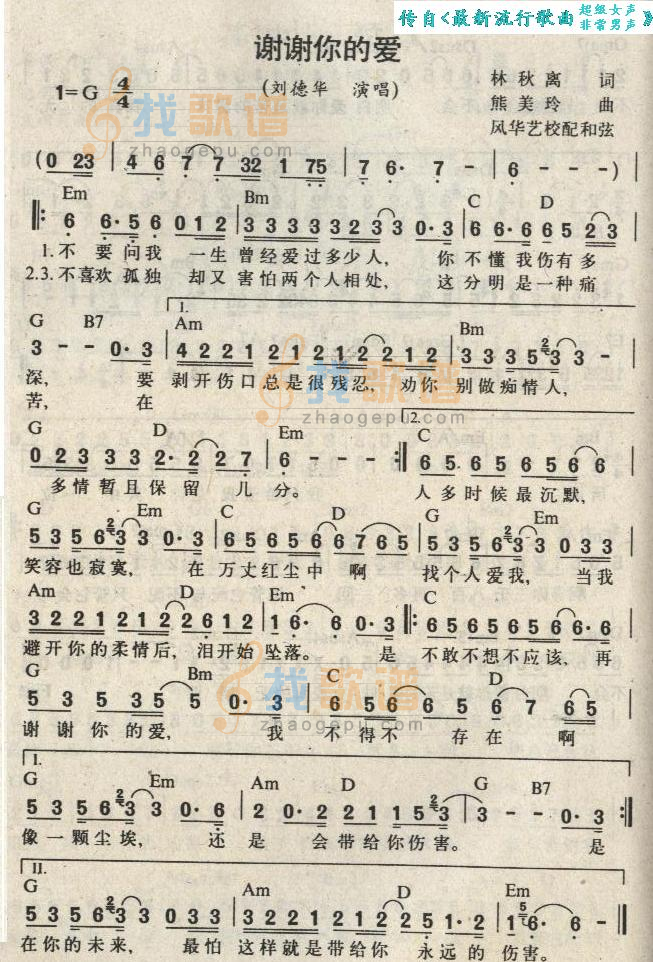 传自《最新流行歌曲 超级女声 非常男声》
谢谢你的爱
1=G 4/4 (刘德华 演唱) 林秋离 词
熊美玲 曲
风华艺校配和弦
找歌谱
zhaogepu.com
(0 23 | 4 6· 7 7 32 1 75 | 7 6· 7 - | 6 - - -) |
Em Bm C D
6 6·5 6 0 1 2 | 3 3 3 3 3 2 3 3 0·3 | 6 6·6 6 5 2 3 |
1.不 要问我 一生 曾经爱过多少人, 你 不懂我伤有多
2.3.不喜欢 孤独 却又 害怕两个人相处, 这分明是一种痛
1.
G B7 Am Bm
3 - - 0·3 | 4 2 2 1 2 1 2 1 2 2 1 2 | 3 3 3 5 3 3 - |
深, 要 剥开伤口总是很残忍, 劝你 别做痴情人,
苦, 在
找歌谱
zhaogepu.com
2.
G D Em C
0 2 3 3 3 2·2 2 7 | 6 - - - :| 6 5 6 5 6 5 6 6
多情暂且保留 几分。 人多时候最沉默,
G Em C D G Em
5 3 5 6 3 3 0·3 | 6 5 6 5 6 6 7 6 5 | 5 3 5 6 3 3 0 3 3
笑容也寂寞, 在万丈红尘中 啊 找个人爱我, 当我
Am D Em C
3 2 2 1 2 1 2 2 6 1 2 | 1 6· 6 0·3 |: 6 5 6 5 6 5 6 6·6
避开你的柔情后, 泪开始 坠落。 是 不敢不想不应该, 再
找歌谱
zhaogepu.com
G Bm C D
5 3 5 3 5 5 0·3 | 6 5 6 6 5 6 7 6 5
谢谢你的爱, 我 不得不 存在 啊
I.
G Em Am D G B7
5 3 5 6 3 3 0·6 | 2 0·2 2 1 1 5 3 | 3 - - 0·3 :|
像一颗尘埃, 还是 会带给你伤害。 是
II.
G Am D Em
5 3 5 6 3 3 0 3 3 | 3 2 2 1 2 2 1 2 2 5 1·2 | 1 6· 6· ||
在你的未来, 最怕 这样就是带给你 永远的 伤害。